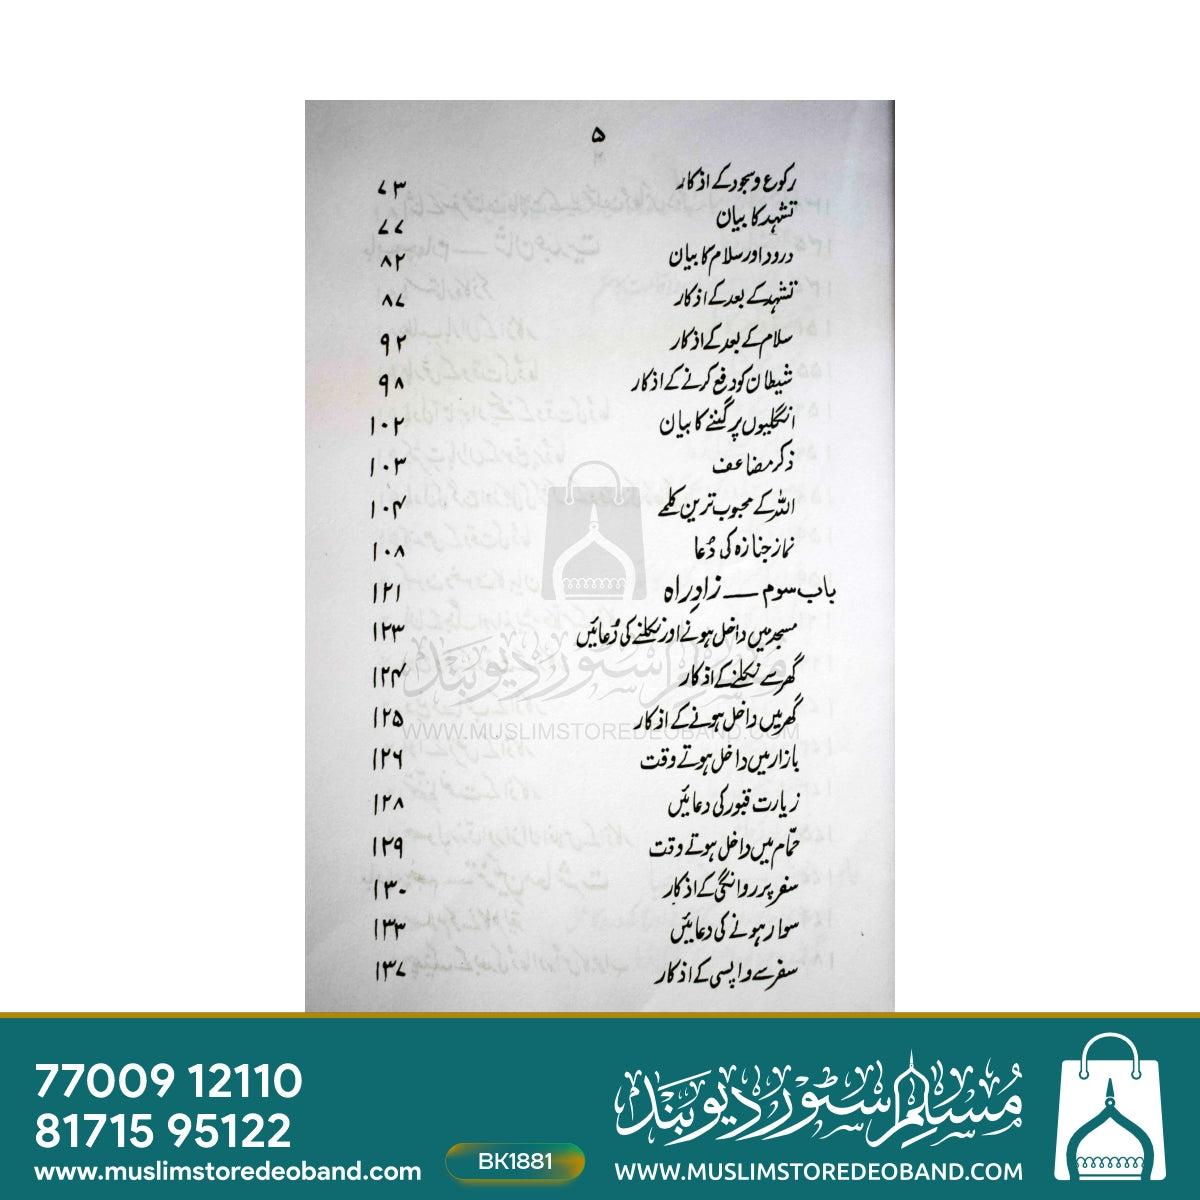 ۵
رکوع و سجود کے اذکار ۷۳
تشہد کا بیان ۷۷
درود اور سلام کا بیان ۸۲
تشہد کے بعد کے اذکار ۸۷
سلام کے بعد کے اذکار ۹۲
شیطان کو دفع کرنے کے اذکار ۹۸
انگلیوں پر گننے کا بیان ۱۰۲
ذکر مضاعف ۱۰۳
اللہ کے محبوب ترین کلمے ۱۰۴
نماز جنازہ کی دُعا ۱۰۸
باب سوم — زادِ راہ ۱۲۱
مسجد میں داخل ہونے اور نکلنے کی دُعائیں ۱۲۳
گھر سے نکلنے کے اذکار ۱۲۴
گھر میں داخل ہونے کے اذکار ۱۲۵
بازار میں داخل ہوتے وقت ۱۲۶
زیارت قبور کی دعائیں ۱۲۸
حمّام میں داخل ہوتے وقت ۱۲۹
سفر پر روانگی کے اذکار ۱۳۰
سوار ہونے کی دعائیں ۱۳۳
سفر سے واپسی کے اذکار ۱۳۷
مسلم سٹور دیوبند
WWW.MUSLIMSTOREDEOBAND.COM
77009 12110
81715 95122
www.muslimstoredeoband.com
BK1881
مُسلم سٹور دیوبند
WWW.MUSLIMSTOREDEOBAND.COM